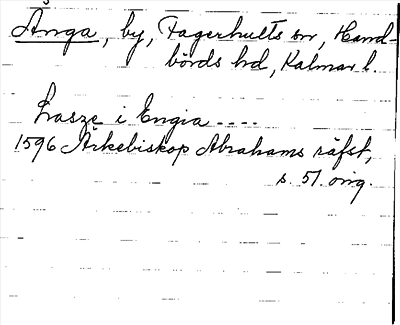 Ånga, by, Fagerhults sn, Hand-
börds hd, Kalmar l.
Lasze i Engia ....
1596 Ärkebiskop Abrahams räfst,
s. 51. orig.